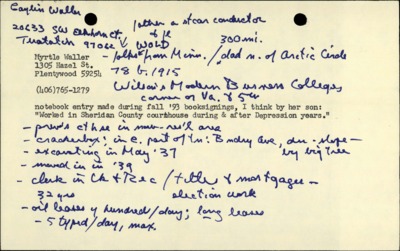 Caylin Waller
father a stcar conductor
20633 SW Elkhorn Ct.
Tualatin 97062
& pl WOLD
300 mi.
- folks from Minn. / dad n. of Arctic Circle
Myrtle Waller
1305 Hazel St.
Plentywood 59254
78 b. 1915
(406)765-1279
Wilson's Modern Business Colleges
corner of Va. & 5th
notebook entry made during fall '93 booksignings, I think by her son:
"Worked in Sheridan County courthouse during & after Depression years."
- prev's ct hse in
area
- crackerbox; in e. part of tn: Bndry ave, on slope -
by big tree
- excavating in May '37
- moved in in '39
- clerk in Ck & Rec / titles & mortgages -
election work
32 yrs
- oil leases y hundred/day; long leases
- 5 typed/day, max